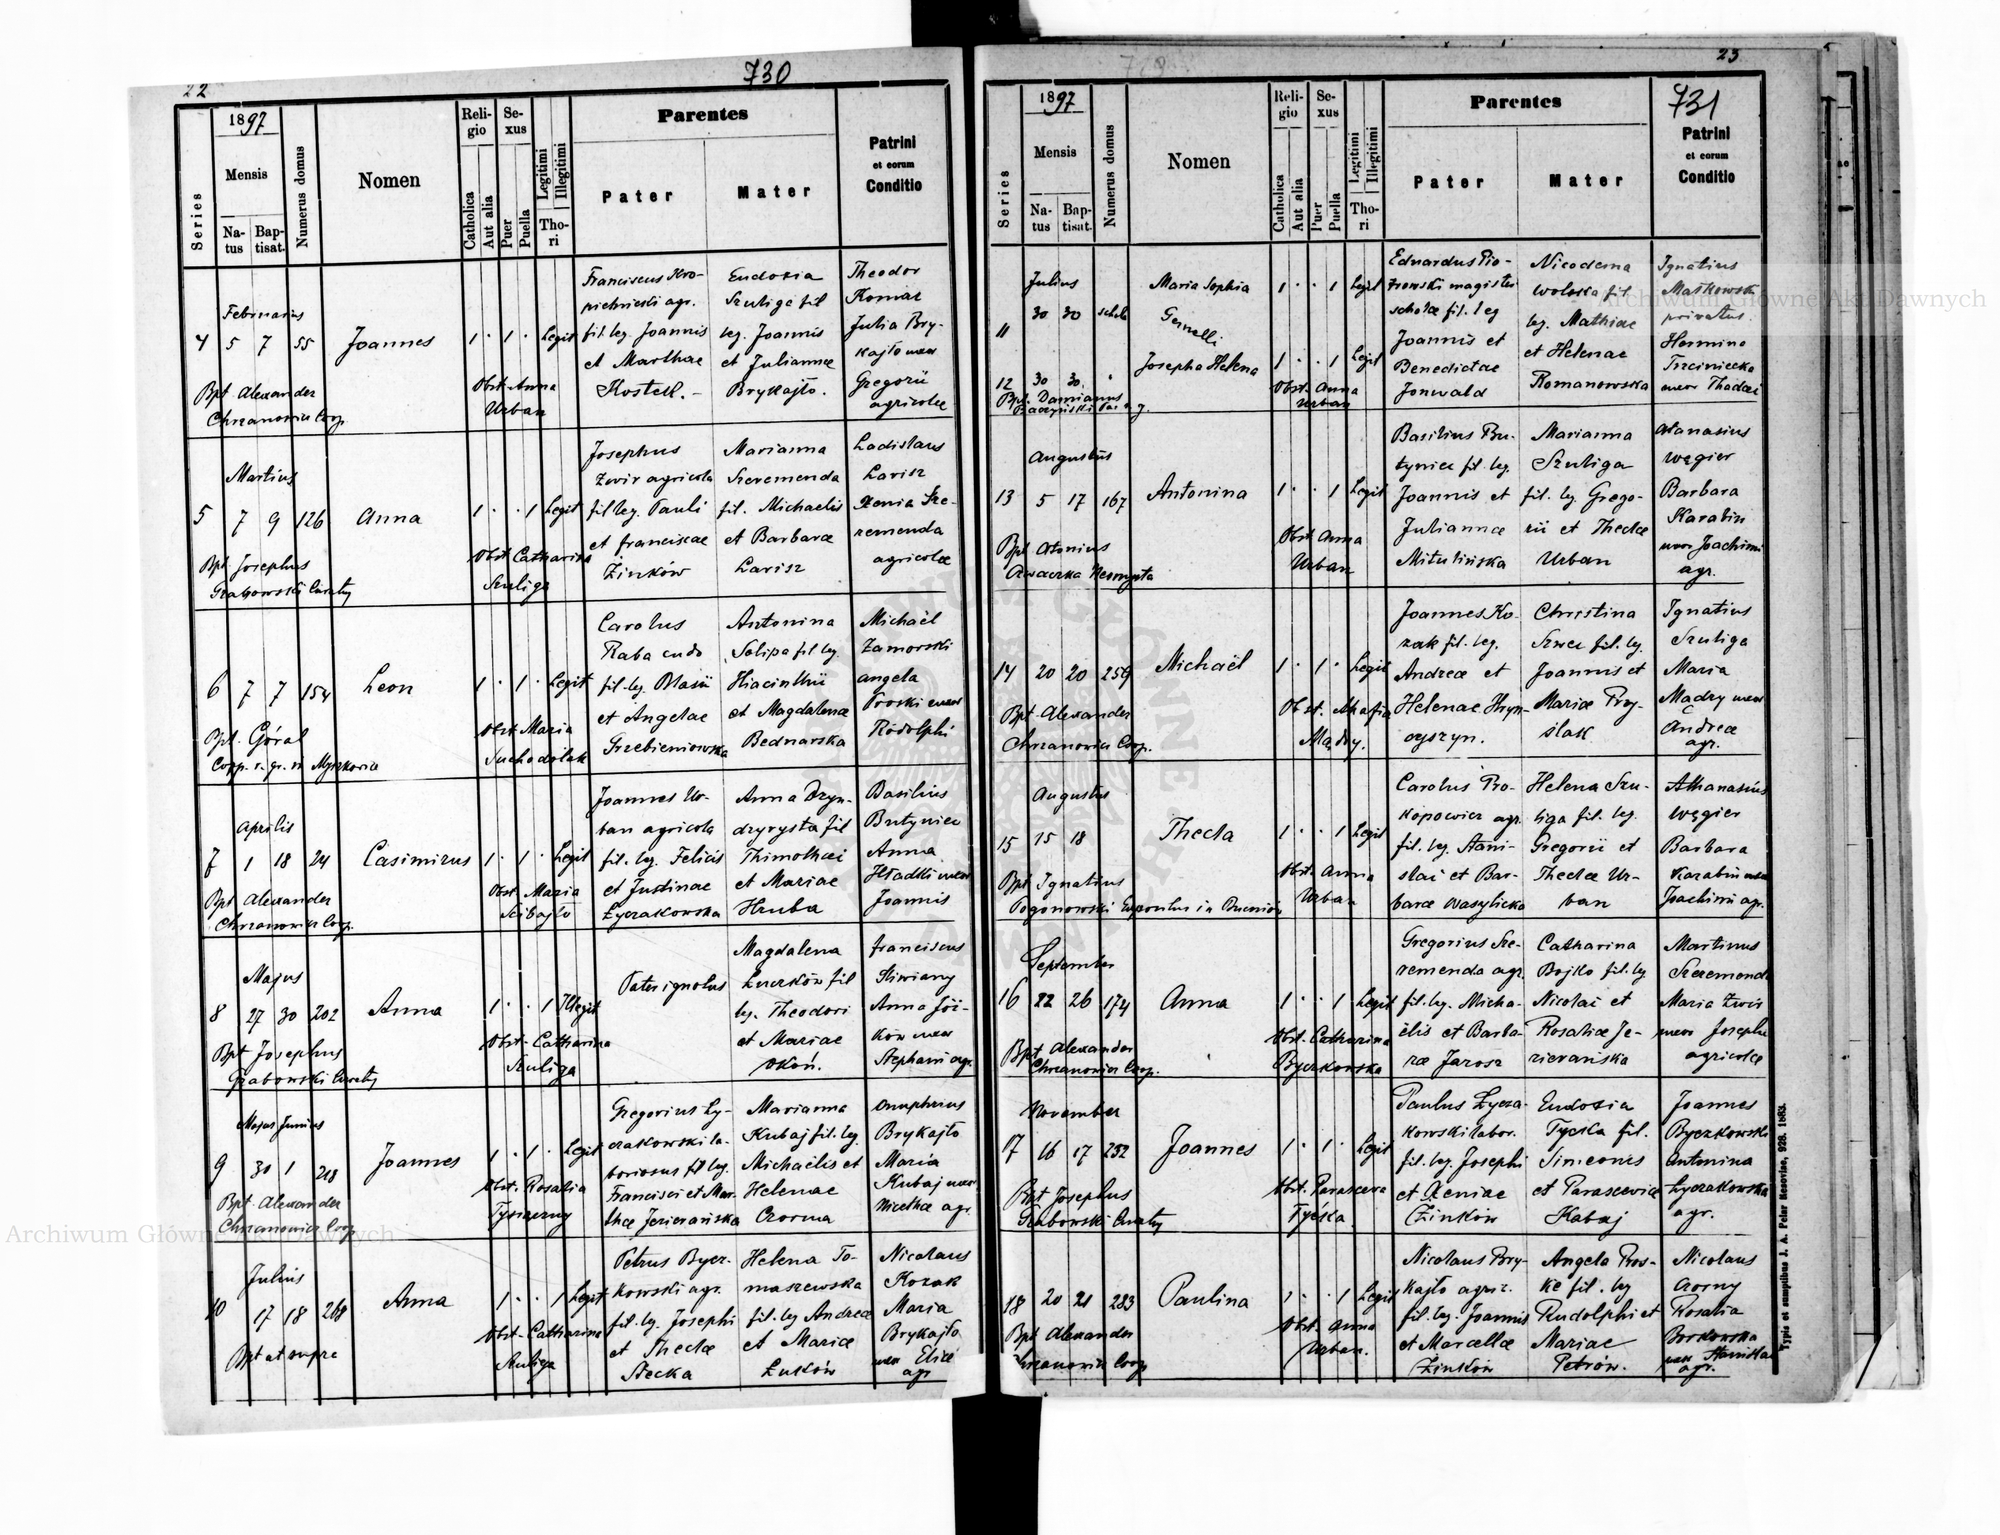 22
730
1897
Series
Mensis
Natus
Baptisat.
Numerus domus
Nomen
Religio
Catholica
Aut alia
Sexus
Puer
Puella
Legitimi
Illegitimi
Thori
Parentes
Pater
Mater
Patrini
et eorum
Conditio
Februarius
4 5 7 55 Joannes 1 · 1 · Legit
Bpt Alexander
Chrzanowicz Coop.
Obst. Anna
Urban
Franciscus Kro-
pielnicki agr.
fil leg. Joannis
et Marthae
Kosteck. -
Eudoxia
Szuliga fil
leg. Joannis
et Juliannae
Brykajło.
Theodor
Komar
Julia Bry-
kajło uxor
Gregorii
agricolae
Martius
5 7 9 126 Anna 1 · · 1 Legit
Bpt Josephus
Grabowski Curatg
Obst. Catharina
Szuliga
Josephus
Zwir agricola
fil leg. Pauli
et Franciscae
Zinków
Marianna
Szeremenda
fil. Michaelis
et Barbarae
Larisz
Ladislaus
Larisz
Xenia Sze-
remenda
agricolae
6 7 7 154 Leon 1 · 1 · Legit
Bpt. Góral
Coop. r. gr. in Myszkowice
Obst Maria
Suchodolak
Carolus
Raba cudo
fil. leg. Blasii
et Angelae
Grzebieniowska
Antonina
Solipa fil leg.
Hiacinthii
et Magdalenae
Bednarska
Michaël
Zamorski
Angela
Proski uxor
Rodolphi
Aprilis
7 1 18 24 Casimirus 1 · 1 · Legit
Bpt Alexander
Chrzanowicz Coop.
Obst. Maria
Joannes Ur-
ban agricola
fil. leg. Felicis
et Justinae
Łyczakowska
Anna Dzyn-
dzyrysta fil
Thimothei
et Mariae
Hruba
Basilius
Butyniec
Anna
Hładki uxor
Joannis
Majus
8 27 30 202 Anna 1 · · 1 Illegit
Bpt Josephus
Grabowski Curatg
Obst. Catharina
Szuliga
Pater ignotus
Magdalena
Luczków fil
leg. Theodori
et Mariae
Okoń.
Franciscus
Sliwiany
Anna
uxor
Stephani agr.
Majus Junius
9 30 1 218 Joannes 1 · 1 · Legit
Bpt. Alexander
Chrzanowicz Coop
Obst. Rosalia
Gregorius Ły-
czakowski la-
boriosus fil leg.
Francisci et Mar-
thae Jezierańska
Marianna
Kubaj fil. leg.
Michaëlis et
Helenae
Czorna
Onuphrius
Brykajło
Maria
Kubaj uxor
Nicethae agr.
Julius
10 17 18 268 Anna 1 · · 1 Legit
Bpt ut supra
Obst. Catharina
Szuliga
Petrus Bycz-
kowski agr.
fil. leg. Josephi
et Theclae
Stecka
Helena To-
maszewska
fil. leg Andreae
et Mariae
Łuków
Nicolaus
Kozak
Maria
Brykajło
uxor Eliae
agr
23
731
1897
Series
Mensis
Natus
Baptisat.
Numerus domus
Nomen
Religio
Catholica
Aut alia
Sexus
Puer
Puella
Legitimi
Illegitimi
Thori
Parentes
Pater
Mater
Patrini
et eorum
Conditio
Julius
11 30 30 schola Maria Sophia 1 · · 1 Legit
Gemelli
12 30 30 Josepha Helena 1 · · 1 Legit
Bpt. Damianus
Obst. Anna
Urban
Eduardus Pio-
trowski magister
scholae fil. leg
Joannis et
Benedictae
Jonwald
Nicodema
Wolska fil
leg. Mathiae
et Helenae
Romanowska
Ignatius
Małkowski
privatus.
Hermina
Trzciniecka
uxor Thadaei
Augustus
13 5 17 167 Antonina 1 · · 1 Legit
Obst. Anna
Urban
Basilius Bu-
tyniec fil. leg.
Joannis et
Juliannae
Mitulińska
Marianna
Szuliga
fil. leg. Grego-
rii et Theclae
Urban
Atanasius
Węgier
Barbara
Karabin
uxor Joachimi
agr.
14 20 20 259 Michaël 1 · 1 · Legit
Bpt. Alexander
Chrzanowicz Coop.
Obst. Ahafia
Mądry.
Joannes Ko-
zak fil. leg.
Andreae et
Helenae Hryn-
czyszyn.
Christina
Szwec fil. leg.
Joannis et
Mariae Przy-
ślak
Ignatius
Szuliga
Maria
Mądry uxor
Andreae
agr.
Augustus
15 15 18 Thecla 1 · · 1 Legit
Bpt Ignatius
Pogonowski Expositus in Bucniów
Obst. Anna
Urban
Carolus Pro-
kopowicz agr.
fil. leg. Stani-
slai et Bar-
barae Wasylicka
Helena Szu-
liga fil. leg.
Gregorii et
Theclae Ur-
ban
Athanasius
Węgier
Barbara
Karabin uxor
Joachimi agr.
September
16 22 26 174 Anna 1 · · 1 Legit
Bpt Alexander
Chrzanowicz Coop.
Obst. Catharina
Byczkowska
Gregorius Sze-
remenda agr.
fil. leg. Micha-
ëlis et Barba-
rae Jarosz
Catharina
Bojko fil. leg
Nicolai et
Rosaliae Je-
zierańska
Martinus
Szeremenda
Maria Zwir
uxor Josephi
agricolae
November
17 16 17 232 Joannes 1 · 1 · Legit
Bpt Josephus
Grabowski Curatg
Obst. Parasceva
Tycka
Paulus Łycza-
kowski labor.
fil. leg. Josephi
et Xeniae
Zinków
Eudoxia
Tycka fil.
Simeonis
et Parasceviae
Kabaj
Joannes
Byczkowski
Antonina
Łyczakowska
agr.
18 20 21 283 Paulina 1 · · 1 Legit
Bpt Alexander
Chrzanowicz Coop
Obst. Anna
Urban.
Nicolaus Bry-
kajło agric.
fil. leg. Joannis
et Marcellae
Zinków
Angela Pros-
ke fil. leg
Rudolphi et
Mariae
Petrów.
Nicolaus
Czorny
Rosalia
Borkowska
uxor Stanislai
agr.
Typis et sumptibus J. A. Pelar Resoviae, 928. 1883.
Archiwum Główne Akt Dawnych
Archiwum Główne Akt Dawnych